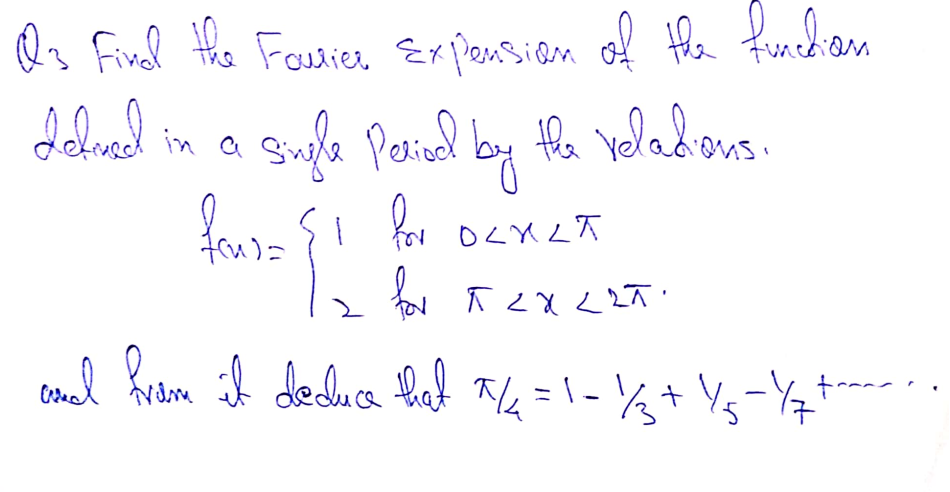 Q3 Find the Fourier Expension of the function
defined in a single Period by the relations.
f(x) = { 1 for 0 < x < π
2 for π < x < 2π.
and from it deduce that π/4 = 1 - 1/3 + 1/5 - 1/7 + ------